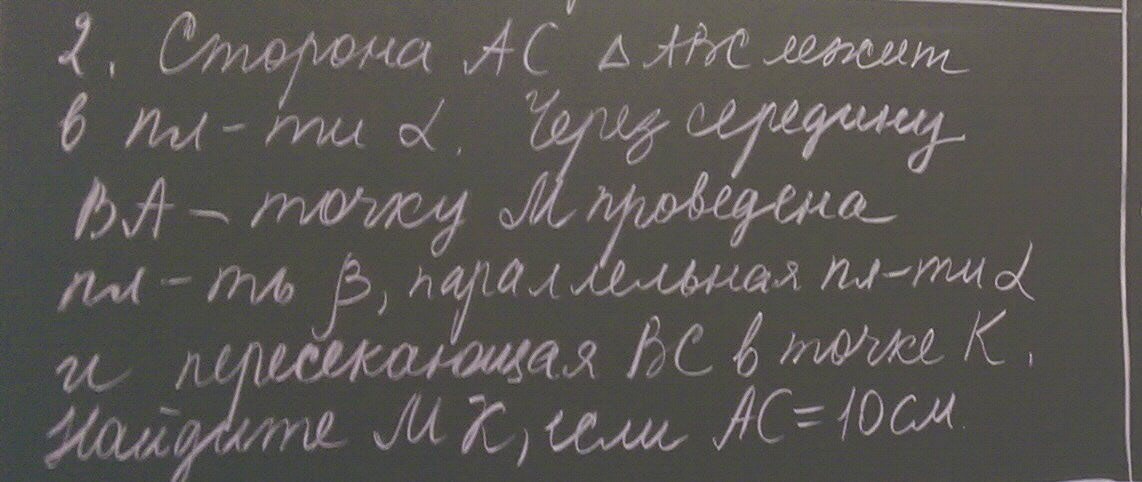 2. Сторона AC △ ABC лежит
в пл-ти α. Через середину
BA - точку M проведена
пл-ть β, параллельная пл-ти α
и пересекающая BC в точке K.
Найдите MK, если AC = 10 см.